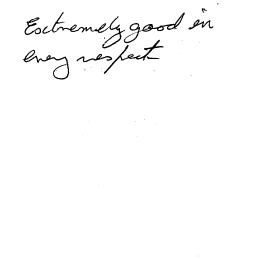 Extremely good in
every respect